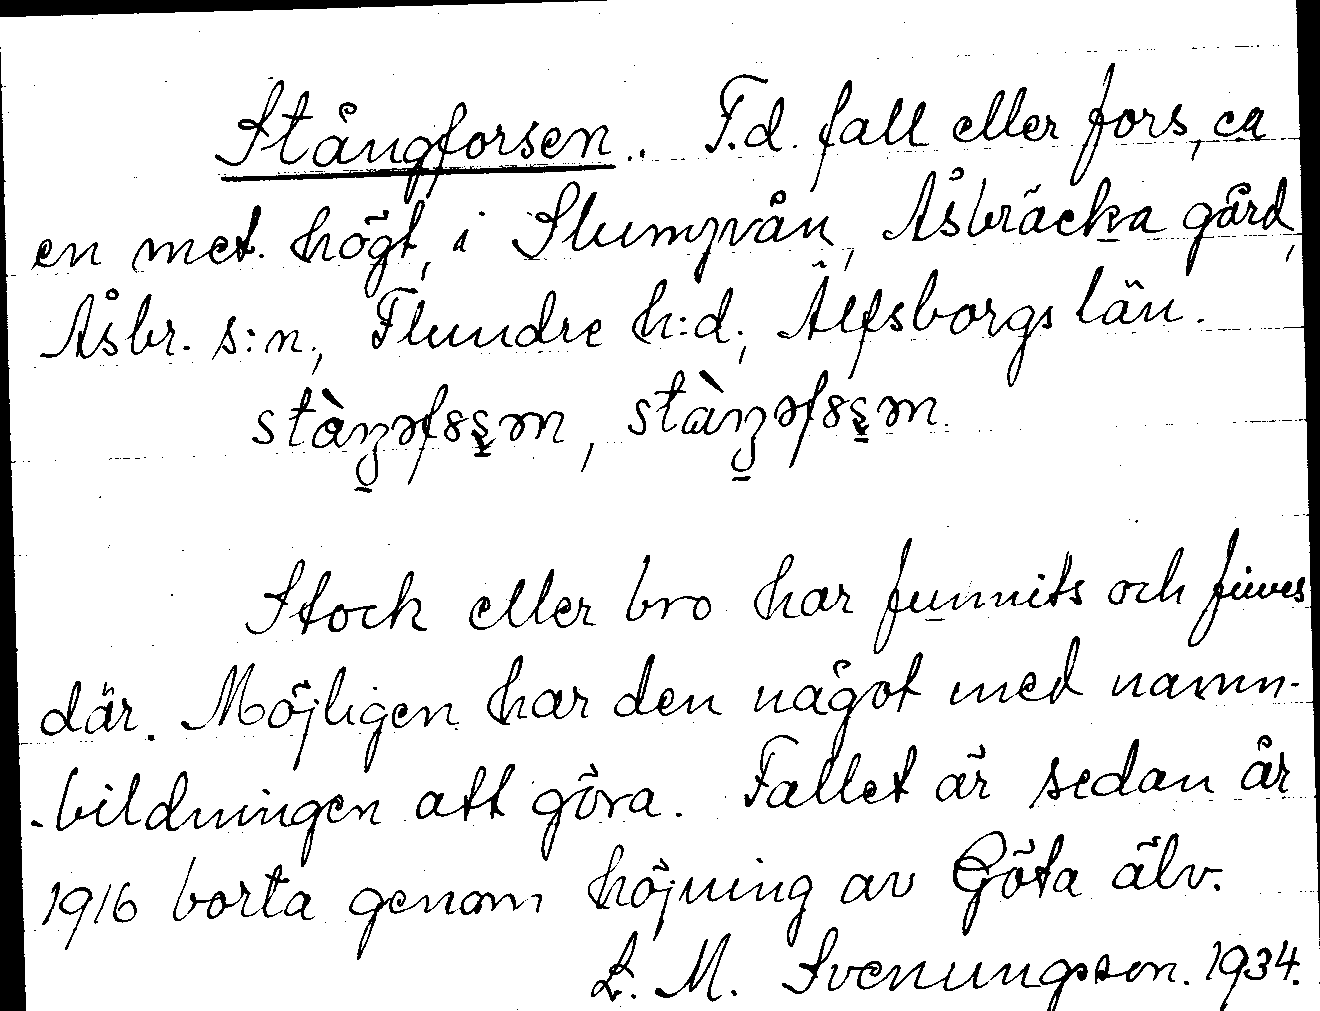 Stångforsen. F.d. fall eller fors, ca
en met. högt, i Slumpån, Åsbräcka gård,
Åsbr. s:n, Flundre h:d, Älfsborgs län.
Stock eller bro har funnits och finnes
där. Möjligen har den något med namn-
-bildningen att göra. Fallet är sedan år
1916 borta genom höjning av Göta älv.
L. M. Svenungsson. 1934.